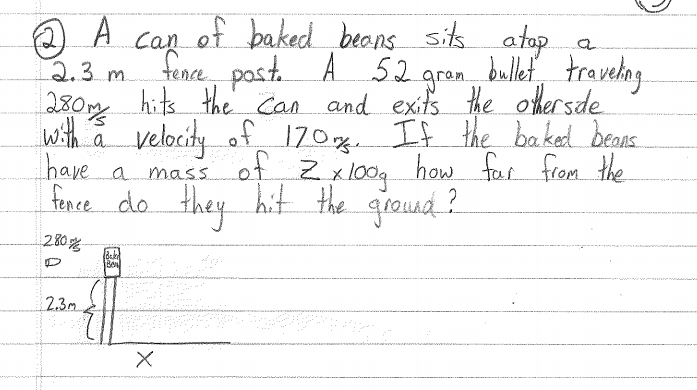 ② A can of baked beans sits atop a
2.3 m fence post. A 52 gram bullet traveling
280 m/s hits the can and exits the otherside
with a velocity of 170 m/s. If the baked beans
have a mass of Z x100g how far from the
fence do they hit the ground?
280 m/s
Bake
Bean
2.3m
X